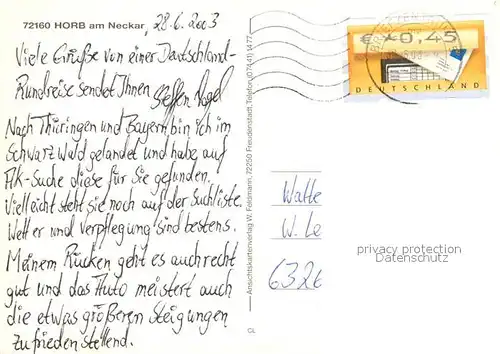 72160 HORB am Neckar, 28.6.2003
Viele Grüße von einer Deutschland-
Rundreise sendet Ihnen Steffen
Nach Thüringen und Bayern bin ich im
Schwarzwald gelandet und habe auf
AK-Suche diese für Sie gefunden.
Vielleicht steht sie noch auf der Suchliste.
Wetter und Verpflegung sind bestens.
Meinem Rücken geht es auch recht
gut und das Auto meistert auch
die etwas größeren Steigungen
zufriedenstellend.
CL
Ansichtskartenverlag W. Feldmann, 72250 Freudenstadt, Telefon (07441) 1477
€ 0,45
DEUTSCHLAND
BRIEFZENTRUM
Watte
W. Le
6326
privacy protection
Datenschutz